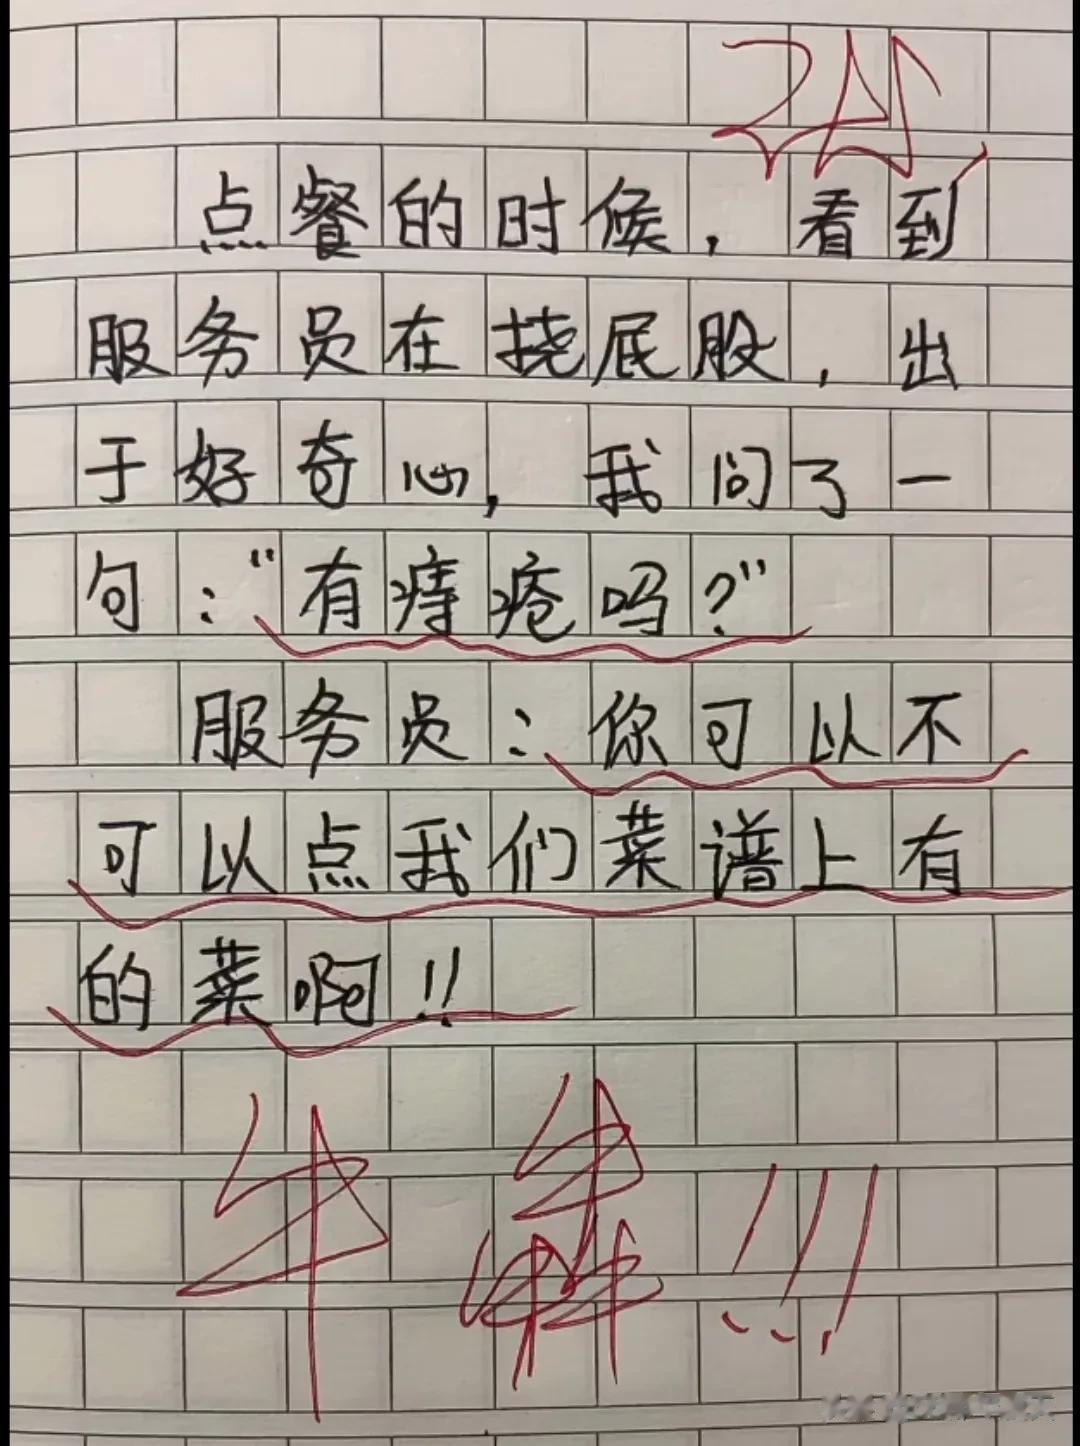 点餐的时候,看到
服务员在挠屁股,出
于好奇心,我问了一
句:“有痔疮吗?”
服务员:你可以不
可以点我们菜谱上有
的菜啊!!
牛犇!!!